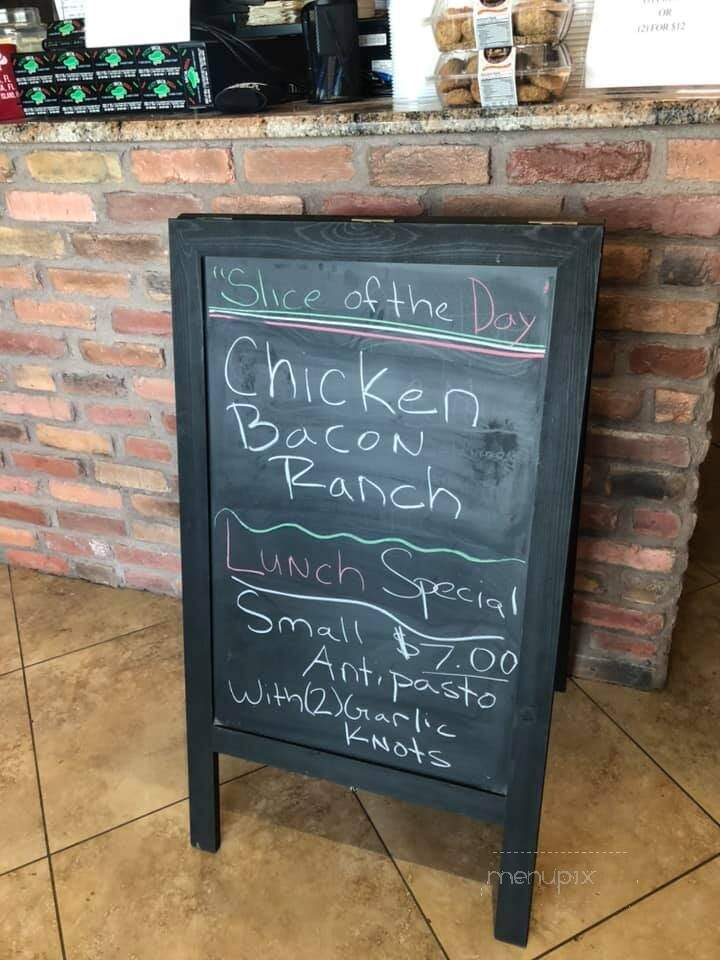 OR
(2) FOR $12
"Slice of the Day"
Chicken
Bacon
Ranch
Lunch Special
Small $7.00
Antipasto
With (2) Garlic
Knots
menupix